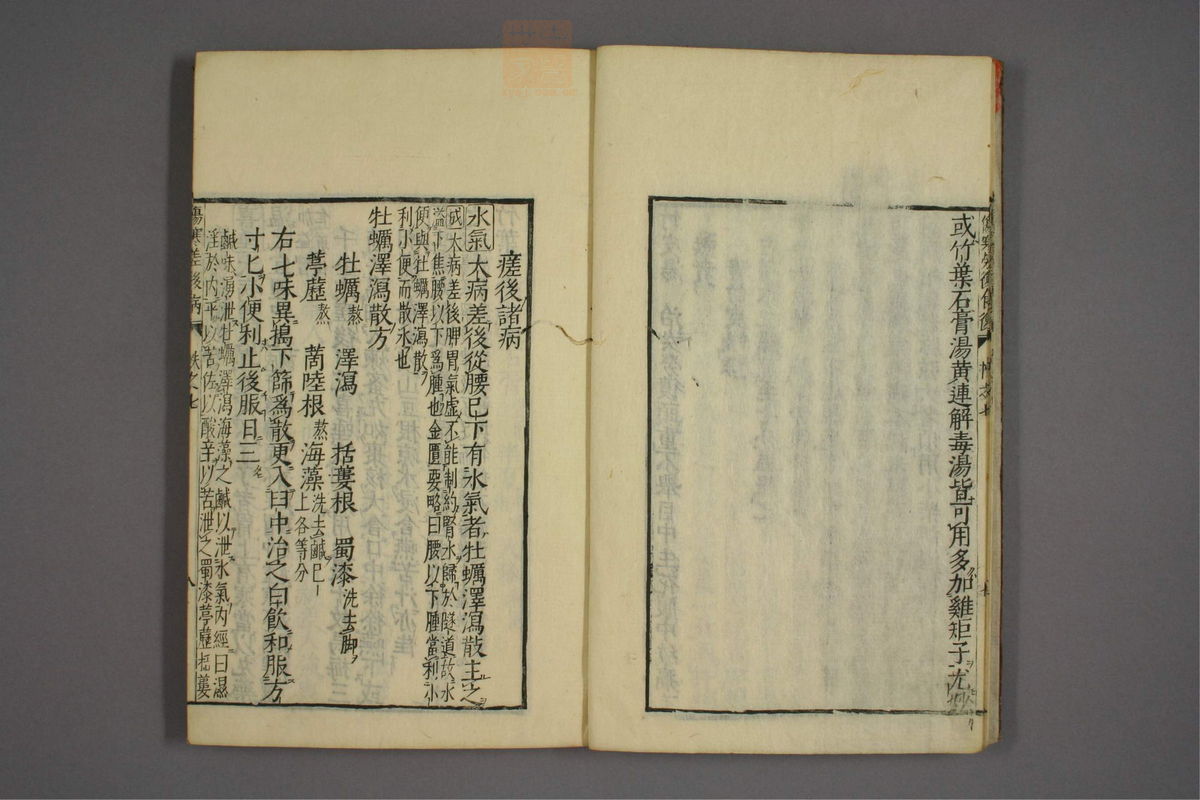 或竹葉石膏湯黄連解毒湯皆可用多加雞矩子尤妙
瘥後諸病
水氣大病差後從腰已下有水氣者牡蠣澤瀉散主之
成大病差後脾胃氣虛不能制約腎水歸於隧道故水
溢下焦腰以下爲腫也金匱要略曰腰以下腫當利小
便與牡蠣澤瀉散
利小便而散水也
牡蠣澤瀉散方
牡蠣熬 澤瀉 括蔞根 蜀漆洗去脚
葶藶熬 蔏陸根熬 海藻洗去鹹巳上各等分
右七味異搗下篩爲散更入臼中治之白飲和服方
寸匕小便利止後服日三
鹹味湧泄牡蠣澤瀉海藻之鹹以泄水氣內經曰濕
淫於内平以苦佐以酸辛以苦泄之蜀漆葶藶括蔞
傷寒差後病